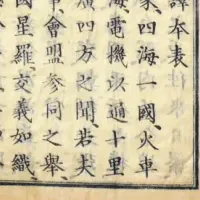 譯本表
家、四海一國、火車
海、電機以通十里
廣四方之聞、若夫
事、會盟參同之舉
國星羅、交義如織